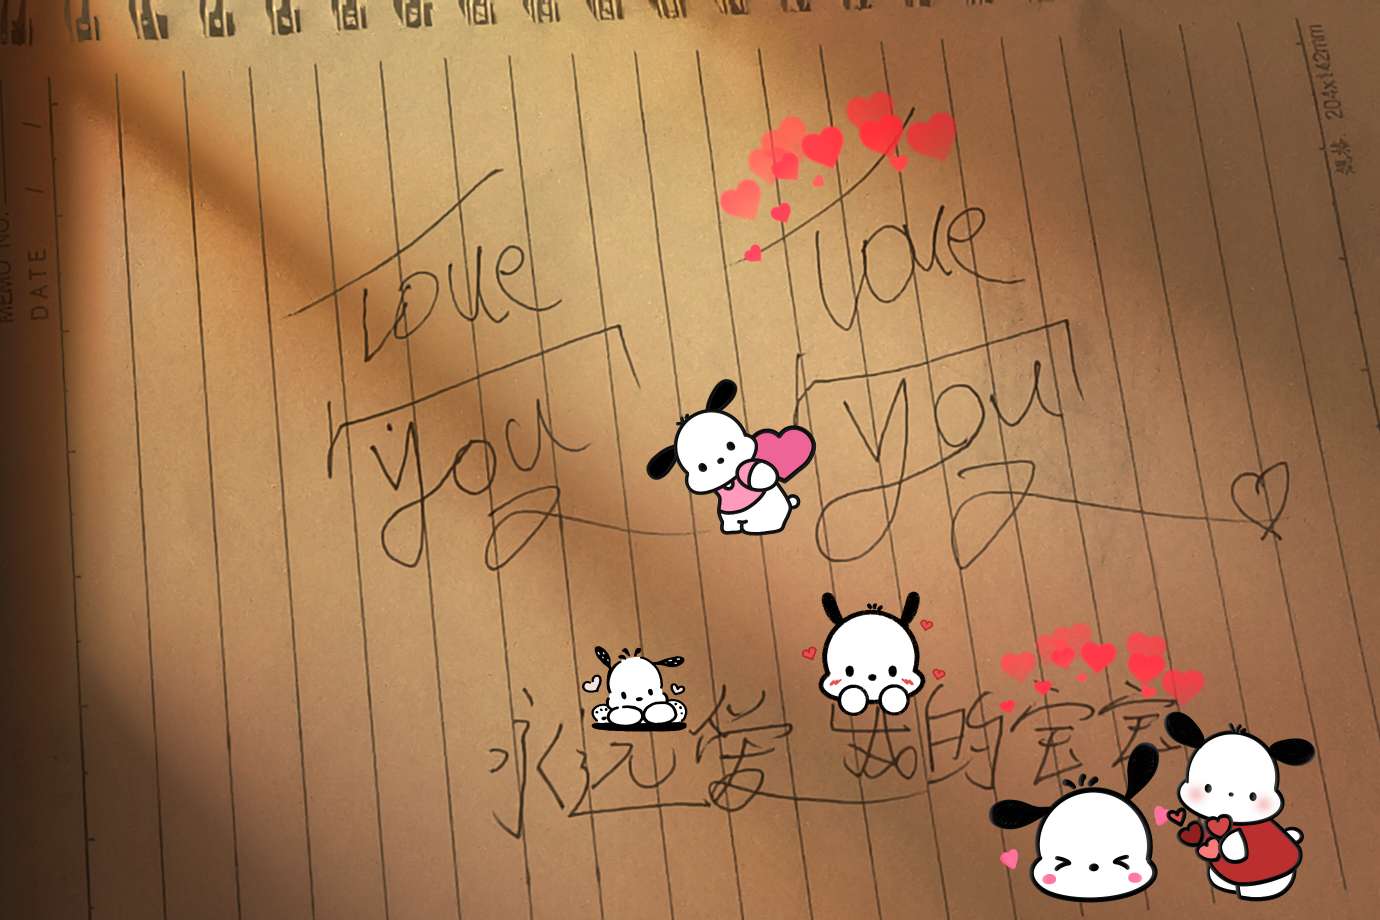 MEMO NO.
DATE / /
规格: 204x142mm
love love
you you
永远爱我的宝宝